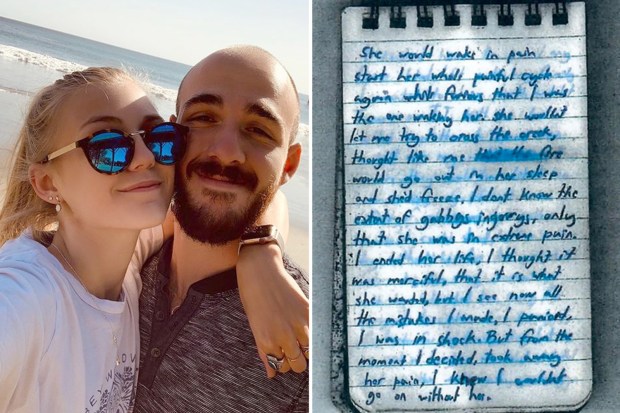 She would wake in pain
start her whole painful cycle
again while furious that I was
the one waking her. She wouldn't
let me try to cross the creek,
thought like me the fire
would go out in her sleep
and she'd freeze. I dont know the
extent of gabbys ingjurys, only
that she was in extreme pain.
I ended her life, I thought it
was merciful, that it is what
she wanted, but I see now all
the mistakes I made. I panicked,
I was in shock. But from the
moment I decided, took away
her pain, I knew I wouldn't
go on without her.